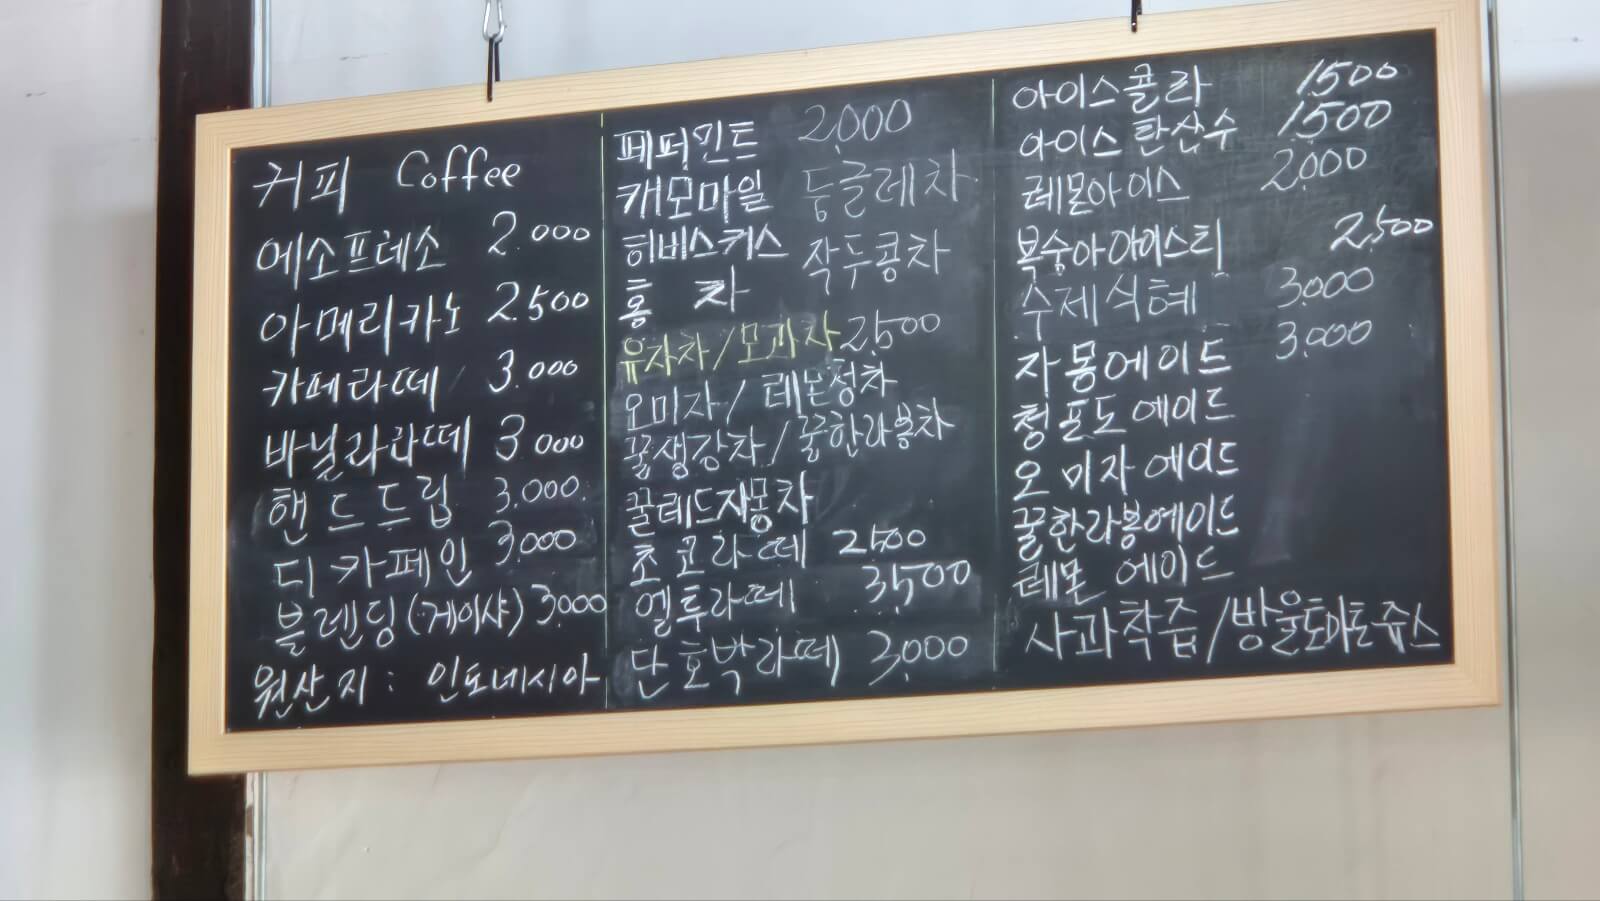 커피 Coffee
에소프레소 2.000
아메리카노 2.500
카페라떼 3.000
바닐라라떼 3.000
핸드드립 3.000.
디카페인 3.000
블렌딩(:게이샤) 3.000
원산지 : 인도네시아
페퍼민트 2,000
캐모마일 둥글레차
히비스커스 작두콩차
홍 차
유자차/모과차 2,500
오미자/레몬청차
꿀생강차/꿀한라봉차
꿀레드자몽차
초코라떼 2500
엘투라떼 3,500
단호박라떼 3,000
아이스콜라 1.500
아이스탄산수 1.500
레몬아이스 2,000
복숭아아이스티 2,500
수제식혜 3.000
자몽에이드 3.000
청포도에이드
오미자에이드
꿀한라봉에이드
레몬에이드
사과착즙/방울토마토쥬스